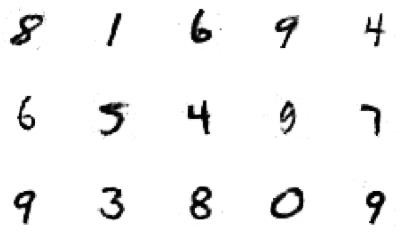 8 1 6 9 4
6 5 4 9 7
9 3 8 0 9